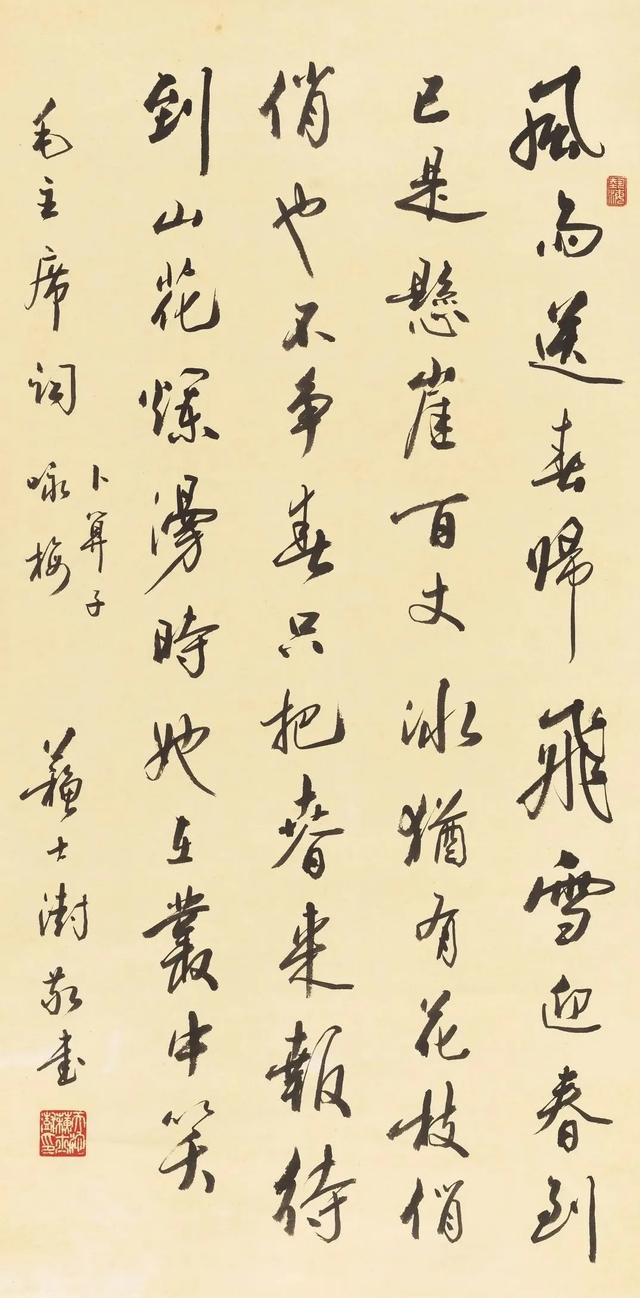 風雨送春歸飛雪迎春到
已是懸崖百丈冰猶有花枝俏
俏也不争春只把春来報待
到山花爛漫時她在叢中笑
毛主席詞卜算子咏梅
蘇士澍敬書